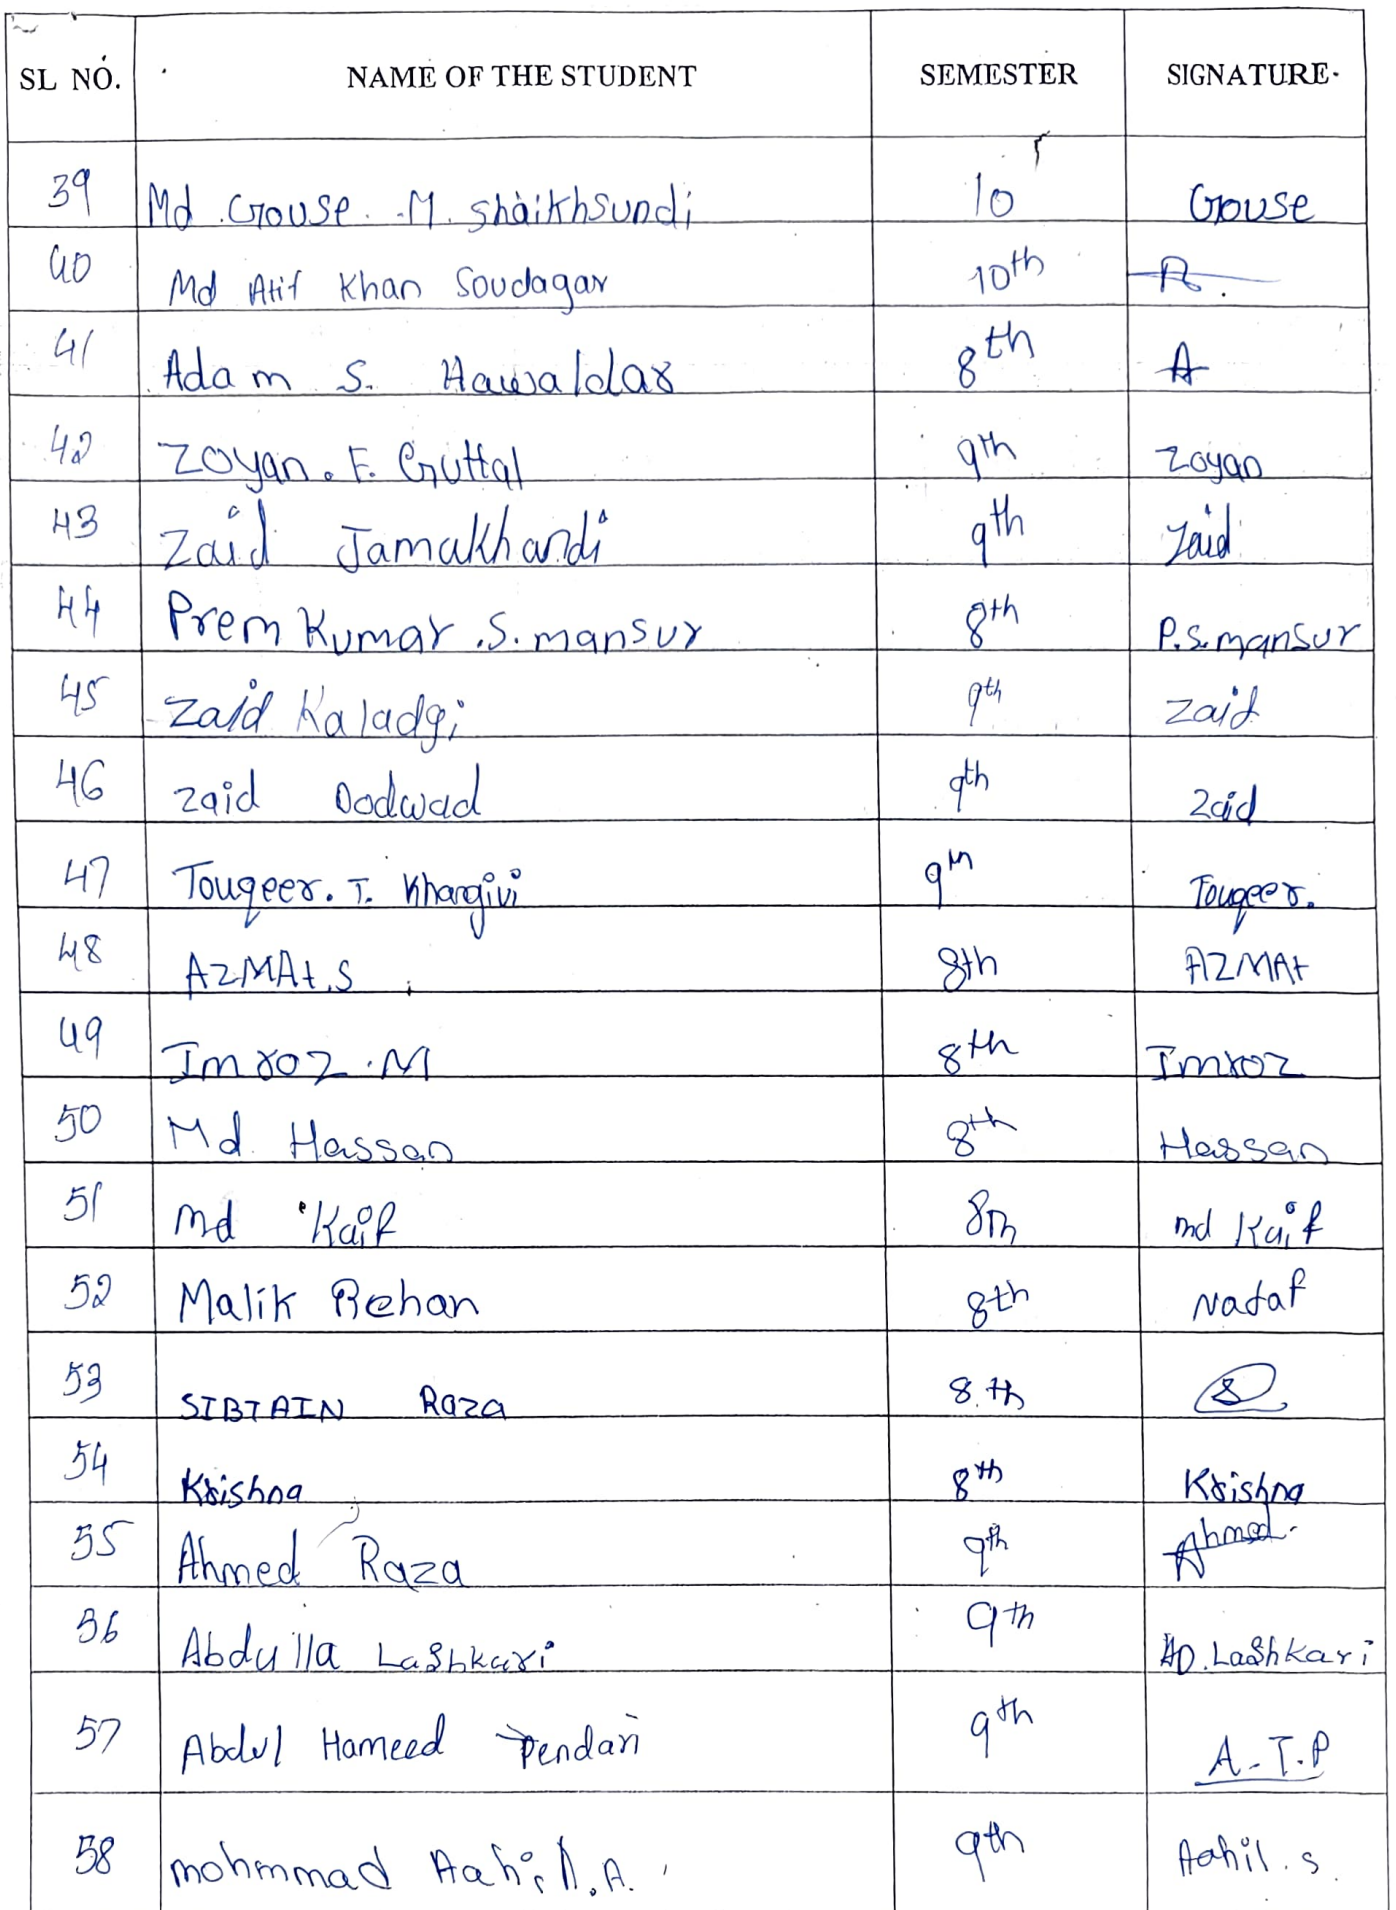 SL NO. NAME OF THE STUDENT SEMESTER SIGNATURE
39 Md Gouse M. Shaikhsundi 10 Gouse
40 Md Atif Khan Soudagar 10th A.
41 Adam S. Hawaldar 8th A
42 Zoyan. F. Guttal 9th Zoyan
43 Zaid Jamakhandi 9th Zaid
44 Prem Kumar .S. mansur 8th P.S. mansur
45 Zaid Kaladgi 9th Zaid
46 zaid Dodwad 9th Zaid
47 Touqeer. T. Khargivi 9th Touqeer.
48 AZMAt.S 8th AZMAt
49 Imroz .M 8th Imroz
50 Md Hassan 8th Hassan
51 md Kaif 8th md Kaif
52 Malik Rehan 8th Nadaf
53 SIBTAIN Raza 8.th S
54 Krishna 8th Krishna
55 Ahmed Raza 9th Ahmed.
56 Abdulla Lashkari 9th AD. Lashkari
57 Abdul Hameed Pendari 9th A-T.P
58 mohmmad Aahil.A. 9th Aahil.s.